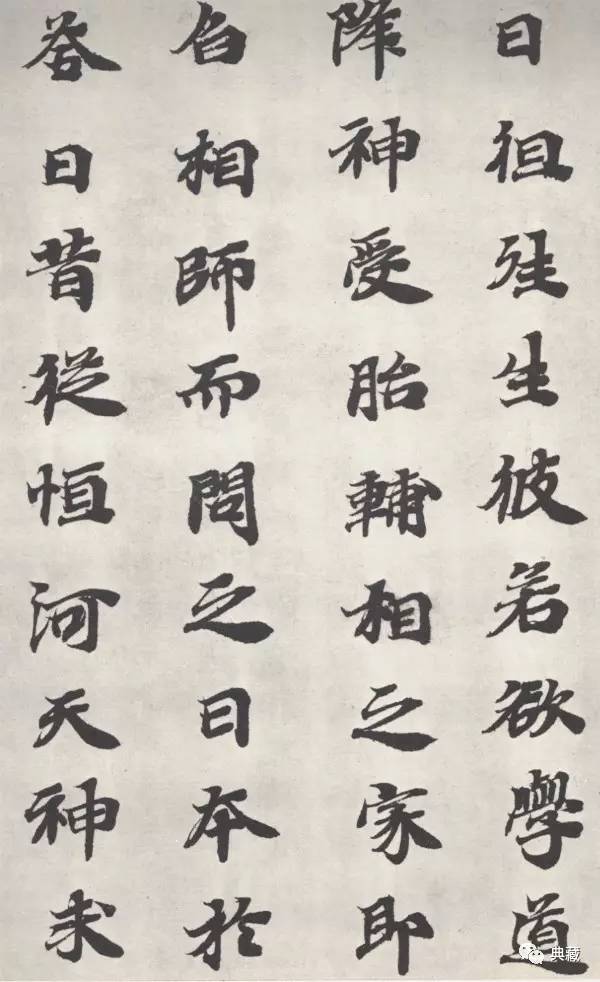 曰徂往生彼若欲學道
降神受胎輔相之家即
召相師而問之曰本於
荅曰昔從恒河天神求
典藏